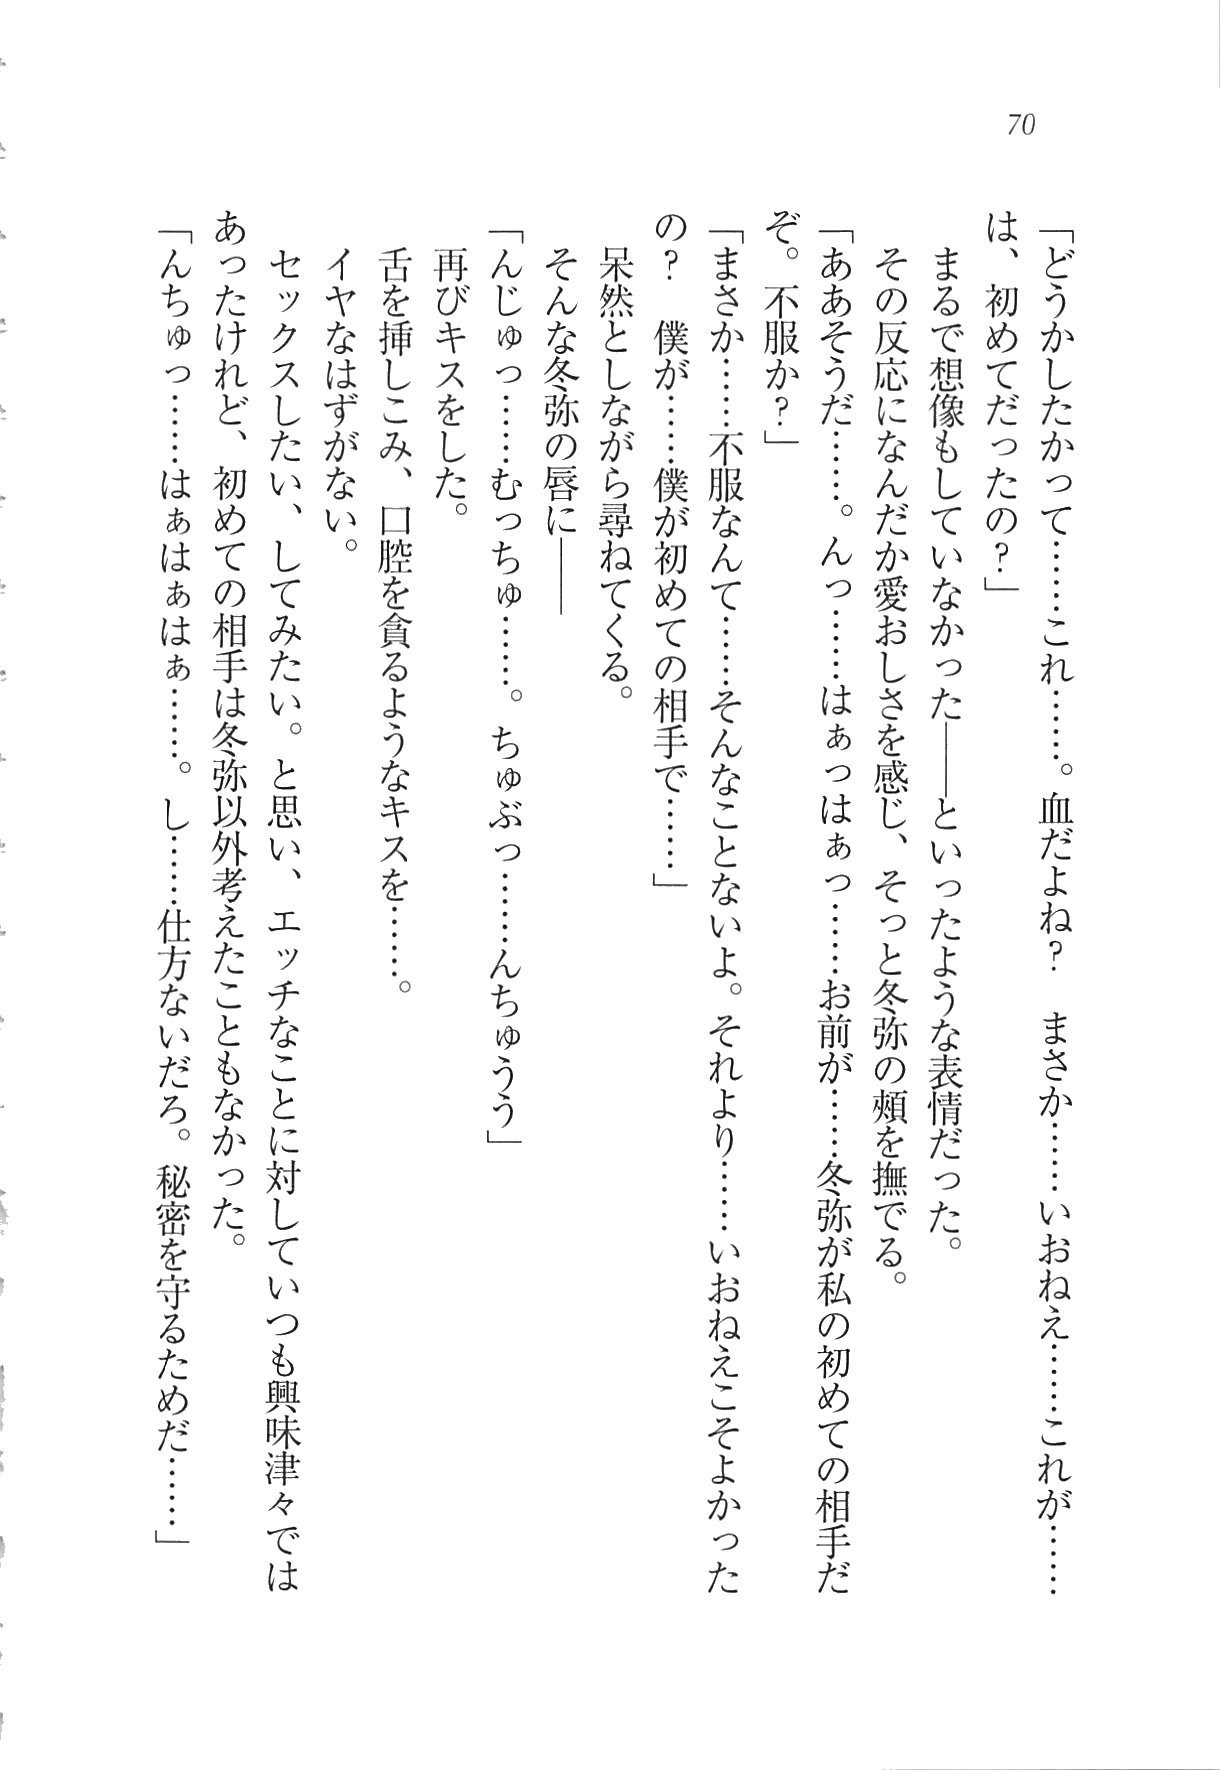 70
「どうかしたかって……これ……。血だよね？　まさか……いおねえ……これが……
は、初めてだったの？」
まるで想像もしていなかった――といったような表情だった。
その反応になんだか愛おしさを感じ、そっと冬弥の頬を撫でる。
「ああそうだ……。んっ……はぁっはぁっ……お前が……冬弥が私の初めての相手だ
ぞ。不服か？」
「まさか……不服なんて……そんなことないよ。それより……いおねえこそよかった
の？　僕が……僕が初めての相手で……」
呆然としながら尋ねてくる。
そんな冬弥の唇に――
「んじゅっ……むっちゅ……。ちゅぶっ……んちゅうう」
再びキスをした。
舌を挿しこみ、口腔を貪るようなキスを……。
イヤなはずがない。
セックスしたい、してみたい。と思い、エッチなことに対していつも興味津々では
あったけれど、初めての相手は冬弥以外考えたこともなかった。
「んちゅっ……はぁはぁはぁ……。し……仕方ないだろ。秘密を守るためだ……」